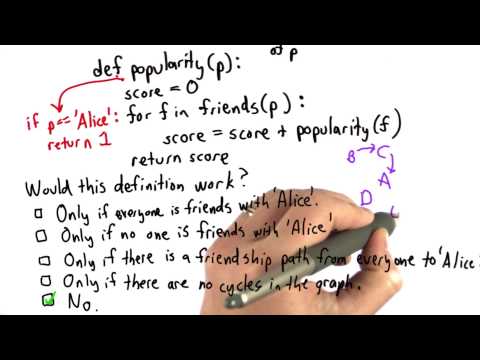 of p
def popularity(p):
score = 0
if p=='Alice':
return 1
for f in friends(p):
score = score + popularity(f)
return score
B → C
A
D
Would this definition work?
Only if everyone is friends with 'Alice'.
Only if no one is friends with 'Alice'
Only if there is a friendship path from everyone to 'Alice'.
Only if there are no cycles in the graph.
No.